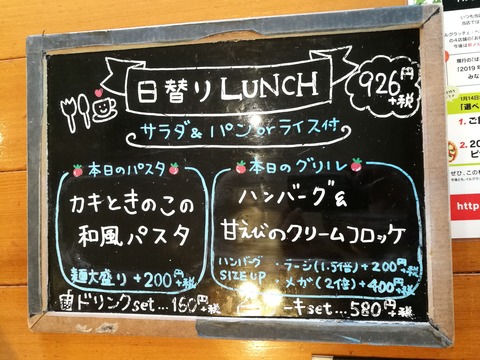 日替り LUNCH
926円+税
サラダ& パン or ライス付
本日のパスタ
カキときのこの
和風パスタ
麺大盛り +200円+税
本日のグリル
ハンバーグ&
甘えびのクリームコロッケ
ハンバーグ SIZE UP
・ラージ(1.5倍)+200円+税
・メガ(2倍)+400円+税
ドリンクset...160円+税
ーキset...580円+税
1月14日
「選べ
1. ご
2. 20
http